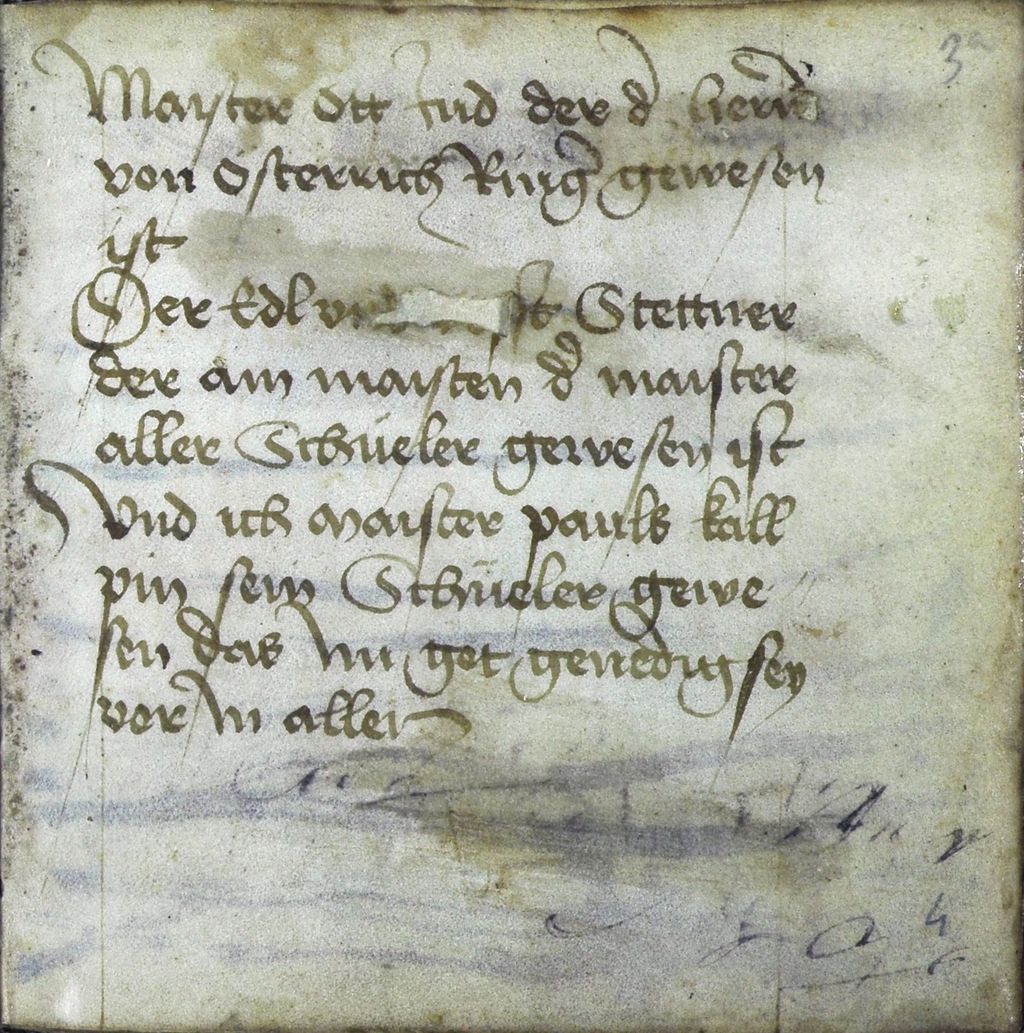 3a
Maister Ott iud der d̕ herñ
von Osterrich Ring̕ gewesen
ist
Der Edl Stettner
der am maisten d̕ maister
aller Schueler gewesen ist
Vnd ich Maister pauls kall
pin sein Schueler gewe
sen das Im got genedig sey
vor In allen